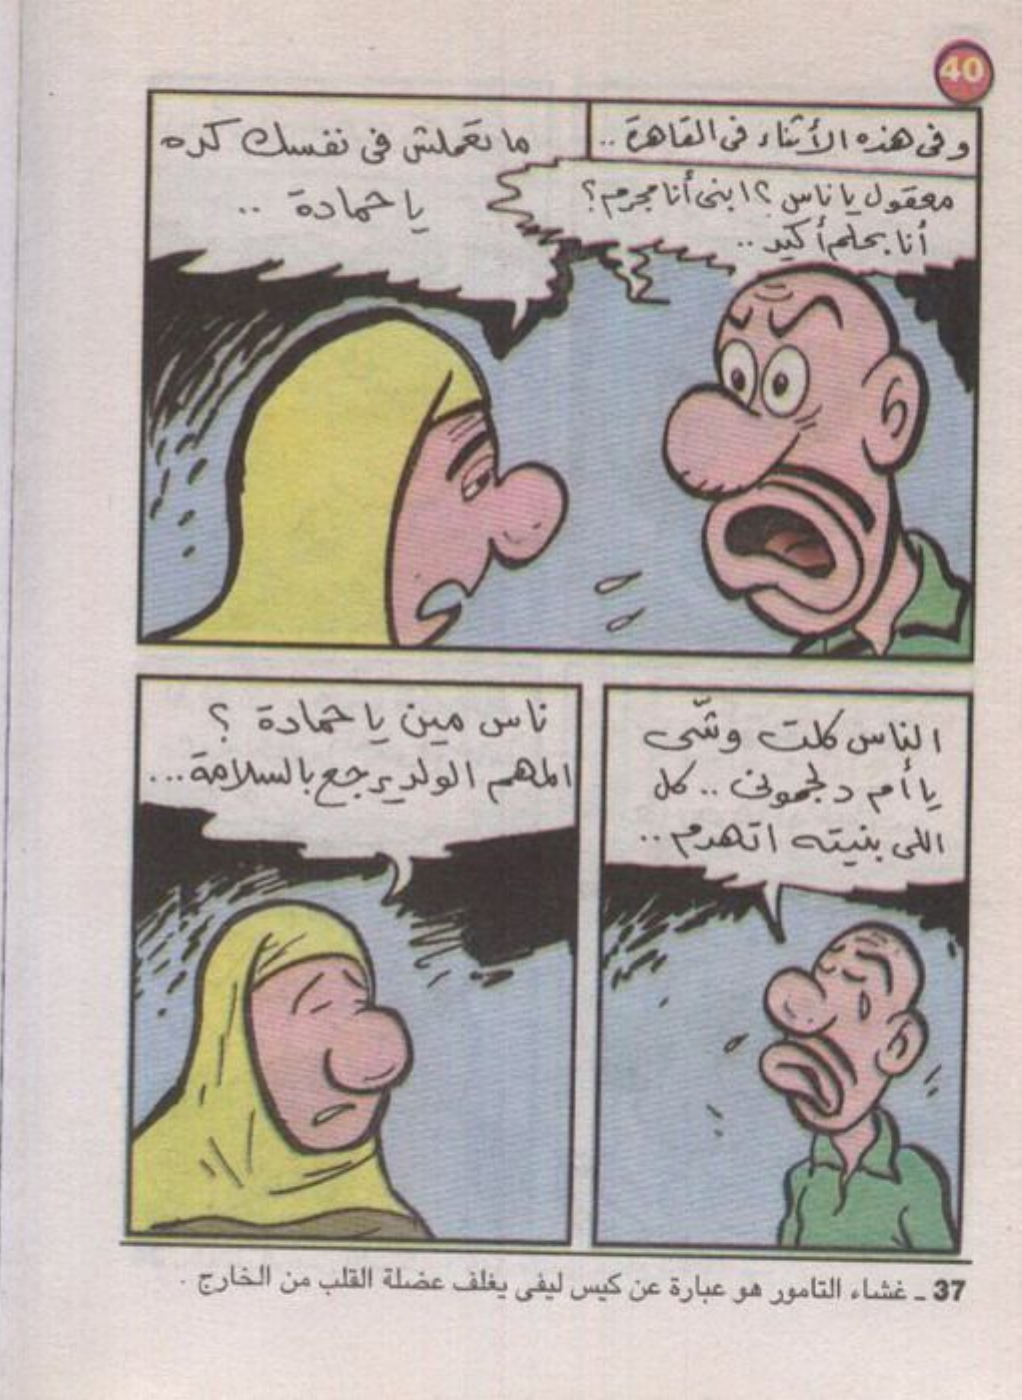 40
وفى هذه الأثناء فى القاهرة ..
معقول يا ناس ؟ ابنى أنا مجرم ؟
أنا بحلم أكيد ..
ما تعملش فى نفسك كده
يا حمادة ..
الناس كلت وشّى
يا أم دلجمونى .. كل
اللى بنيته اتهدم ..
ناس مين يا حمادة ؟
المهم الولد يرجع بالسلامة ...
37 ـ غشاء التامور هو عبارة عن كيس ليفى يغلف عضلة القلب من الخارج .